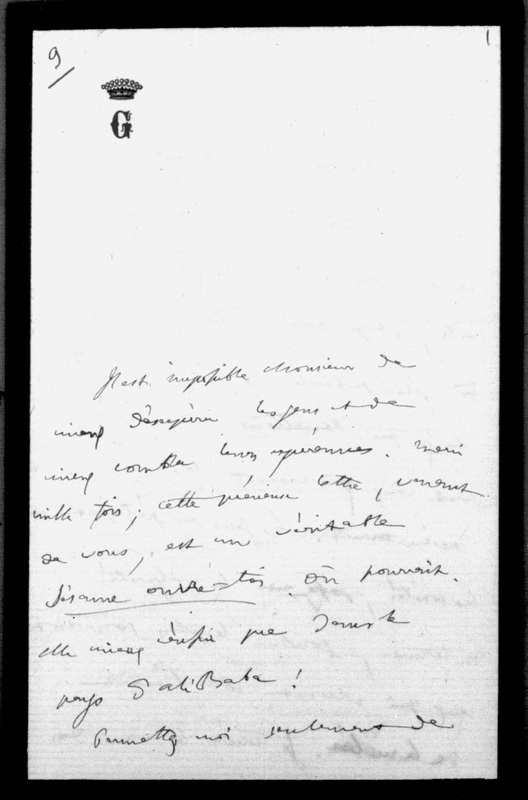 9
1
G
Il est impossible Monsieur de
mieux désespérer les gens et de
mieux combler leurs espérances. Merci
mille fois ; cette précieuse lettre, venant
de vous, est un véritable
Sésame ouvre-toi. Où pourrait-
elle mieux réussir que dans le
pays d'Ali Baba !
Permettez moi seulement de